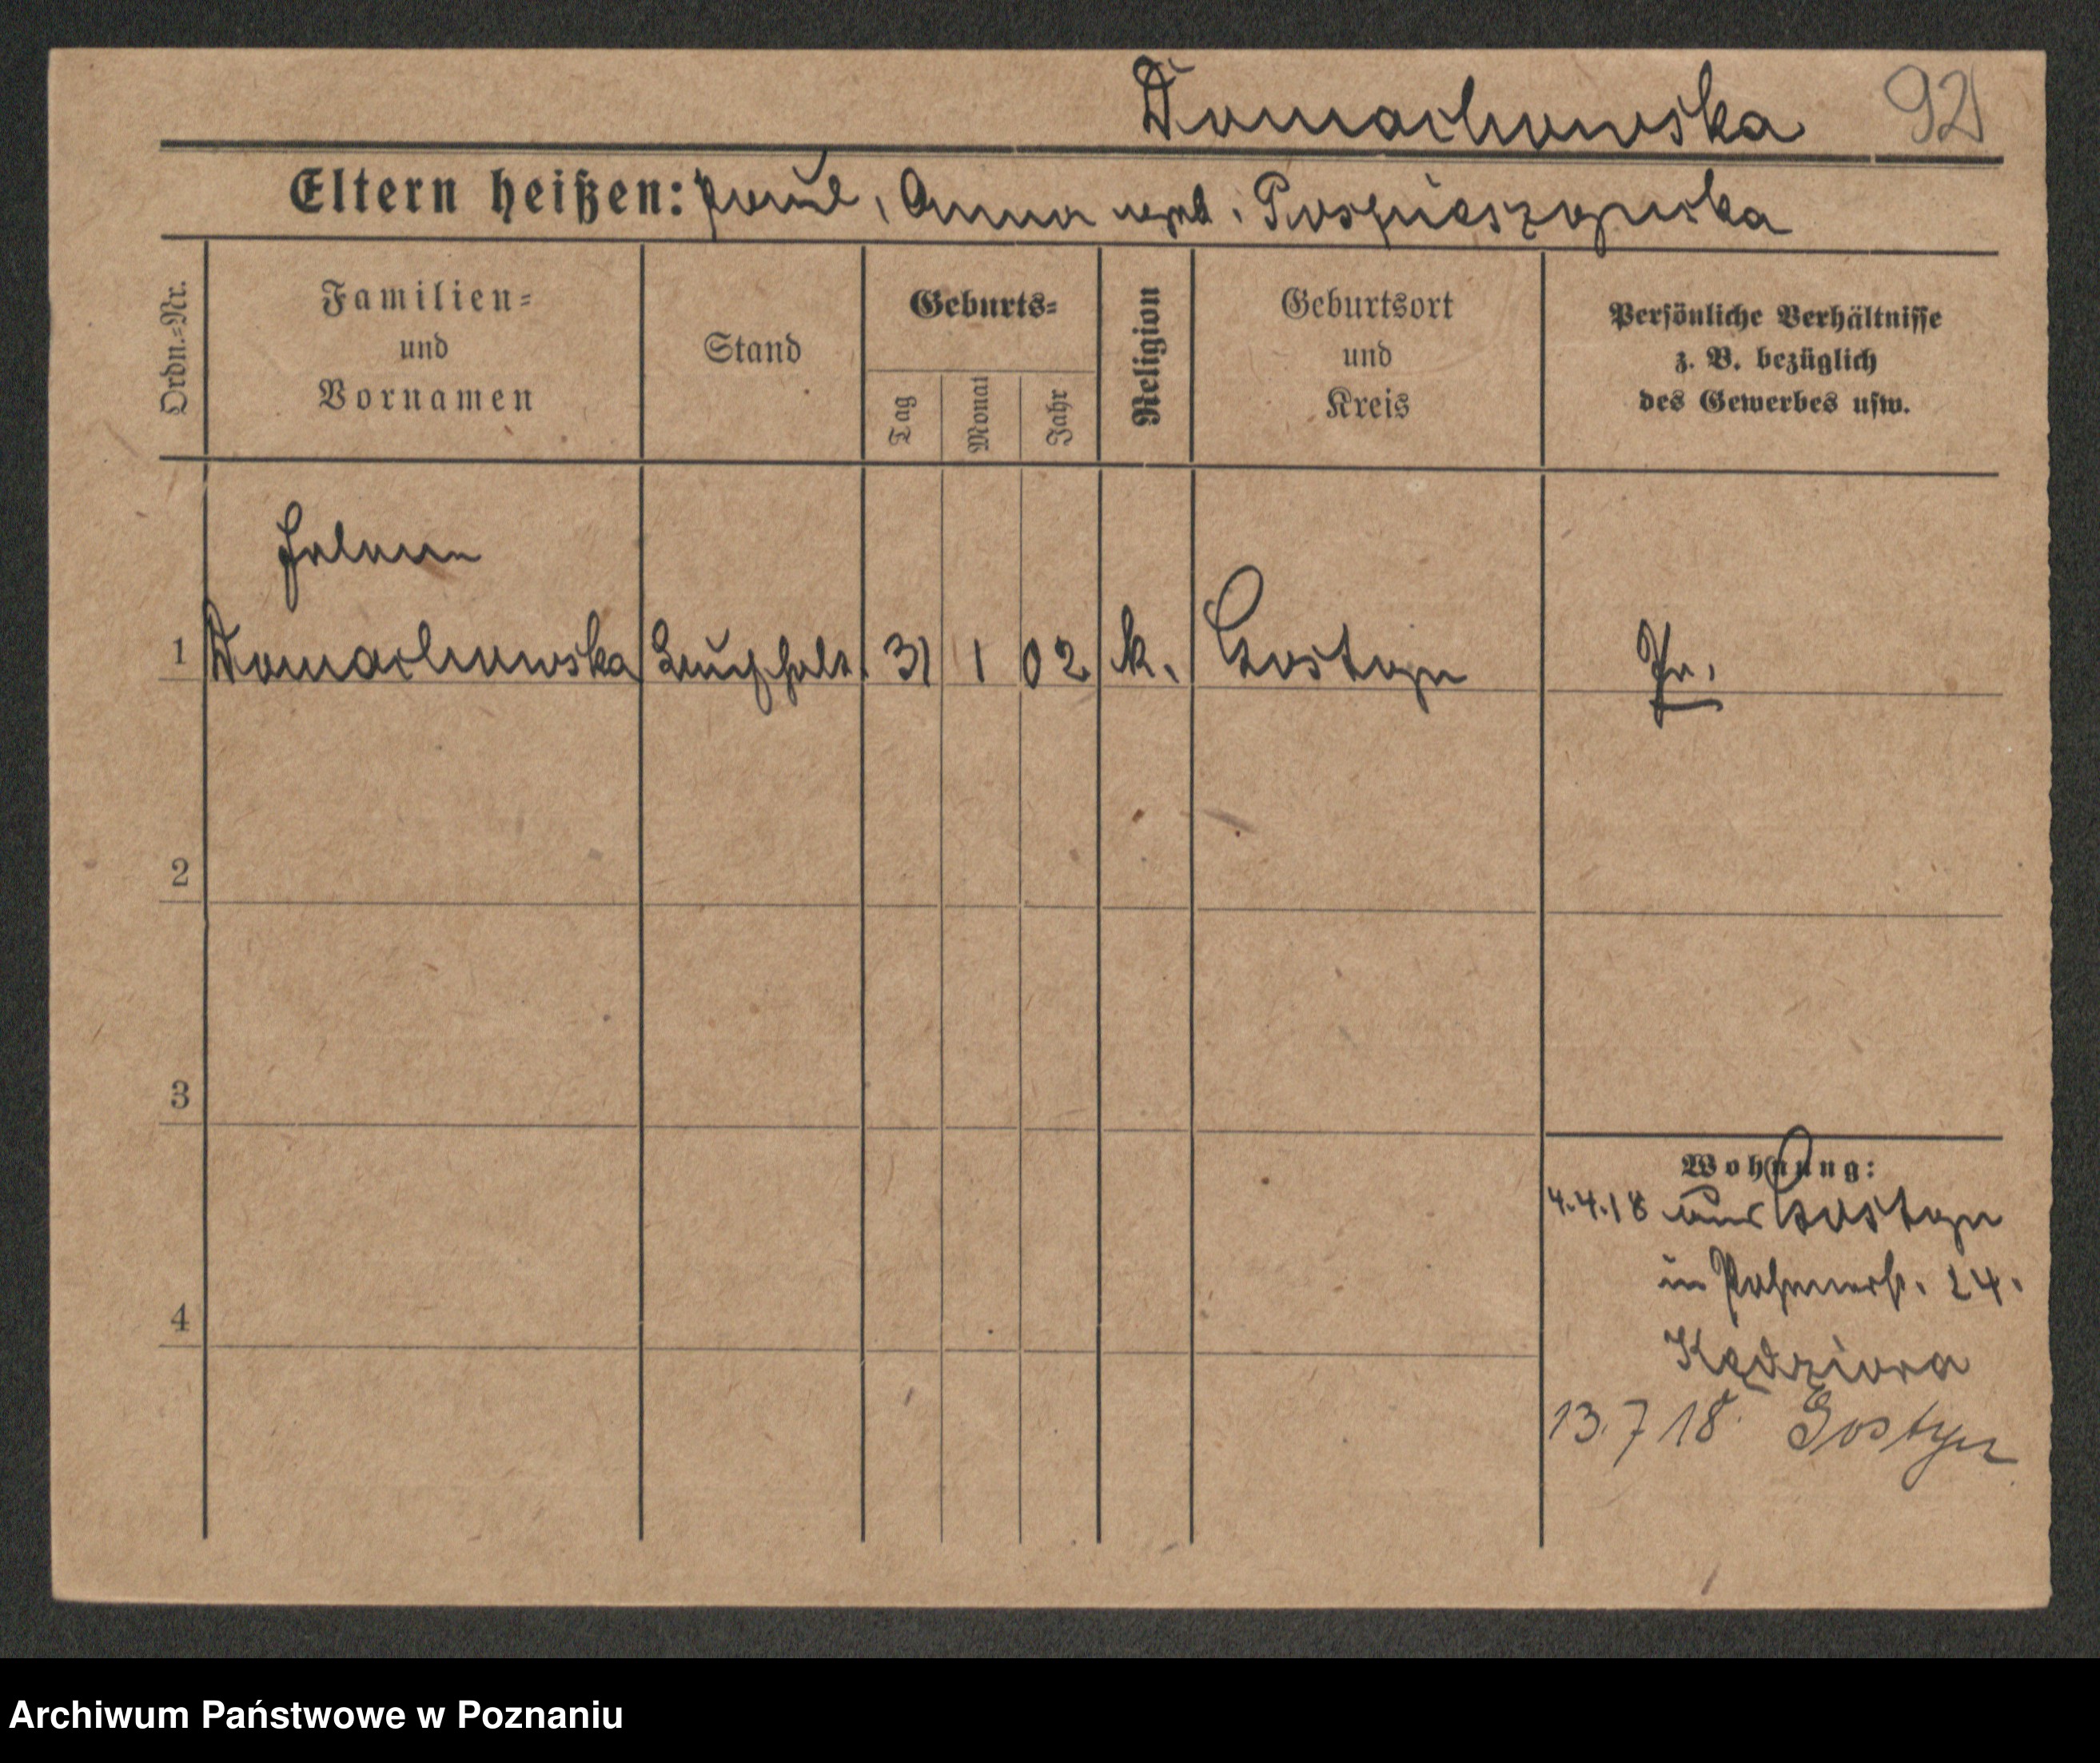 Domachowska 92
Eltern heißen: Paul, Anna geb. Pospieszynska
Ordn.=Nr.
Familien=
und
Vornamen
Stand
Geburts=
Tag
Monat
Jahr
Religion
Geburtsort
und
Kreis
Persönliche Verhältnisse
z. B. bezüglich
des Gewerbes usw.
Helene
1 Domachowska Buchhalt. 31 1 02 k. Gostyn Pr.
2
3
4
Wohnung:
4.4.18 aus Gostyn
in 24.
Kędziora
13.7 18. Gostyn
Archiwum Państwowe w Poznaniu